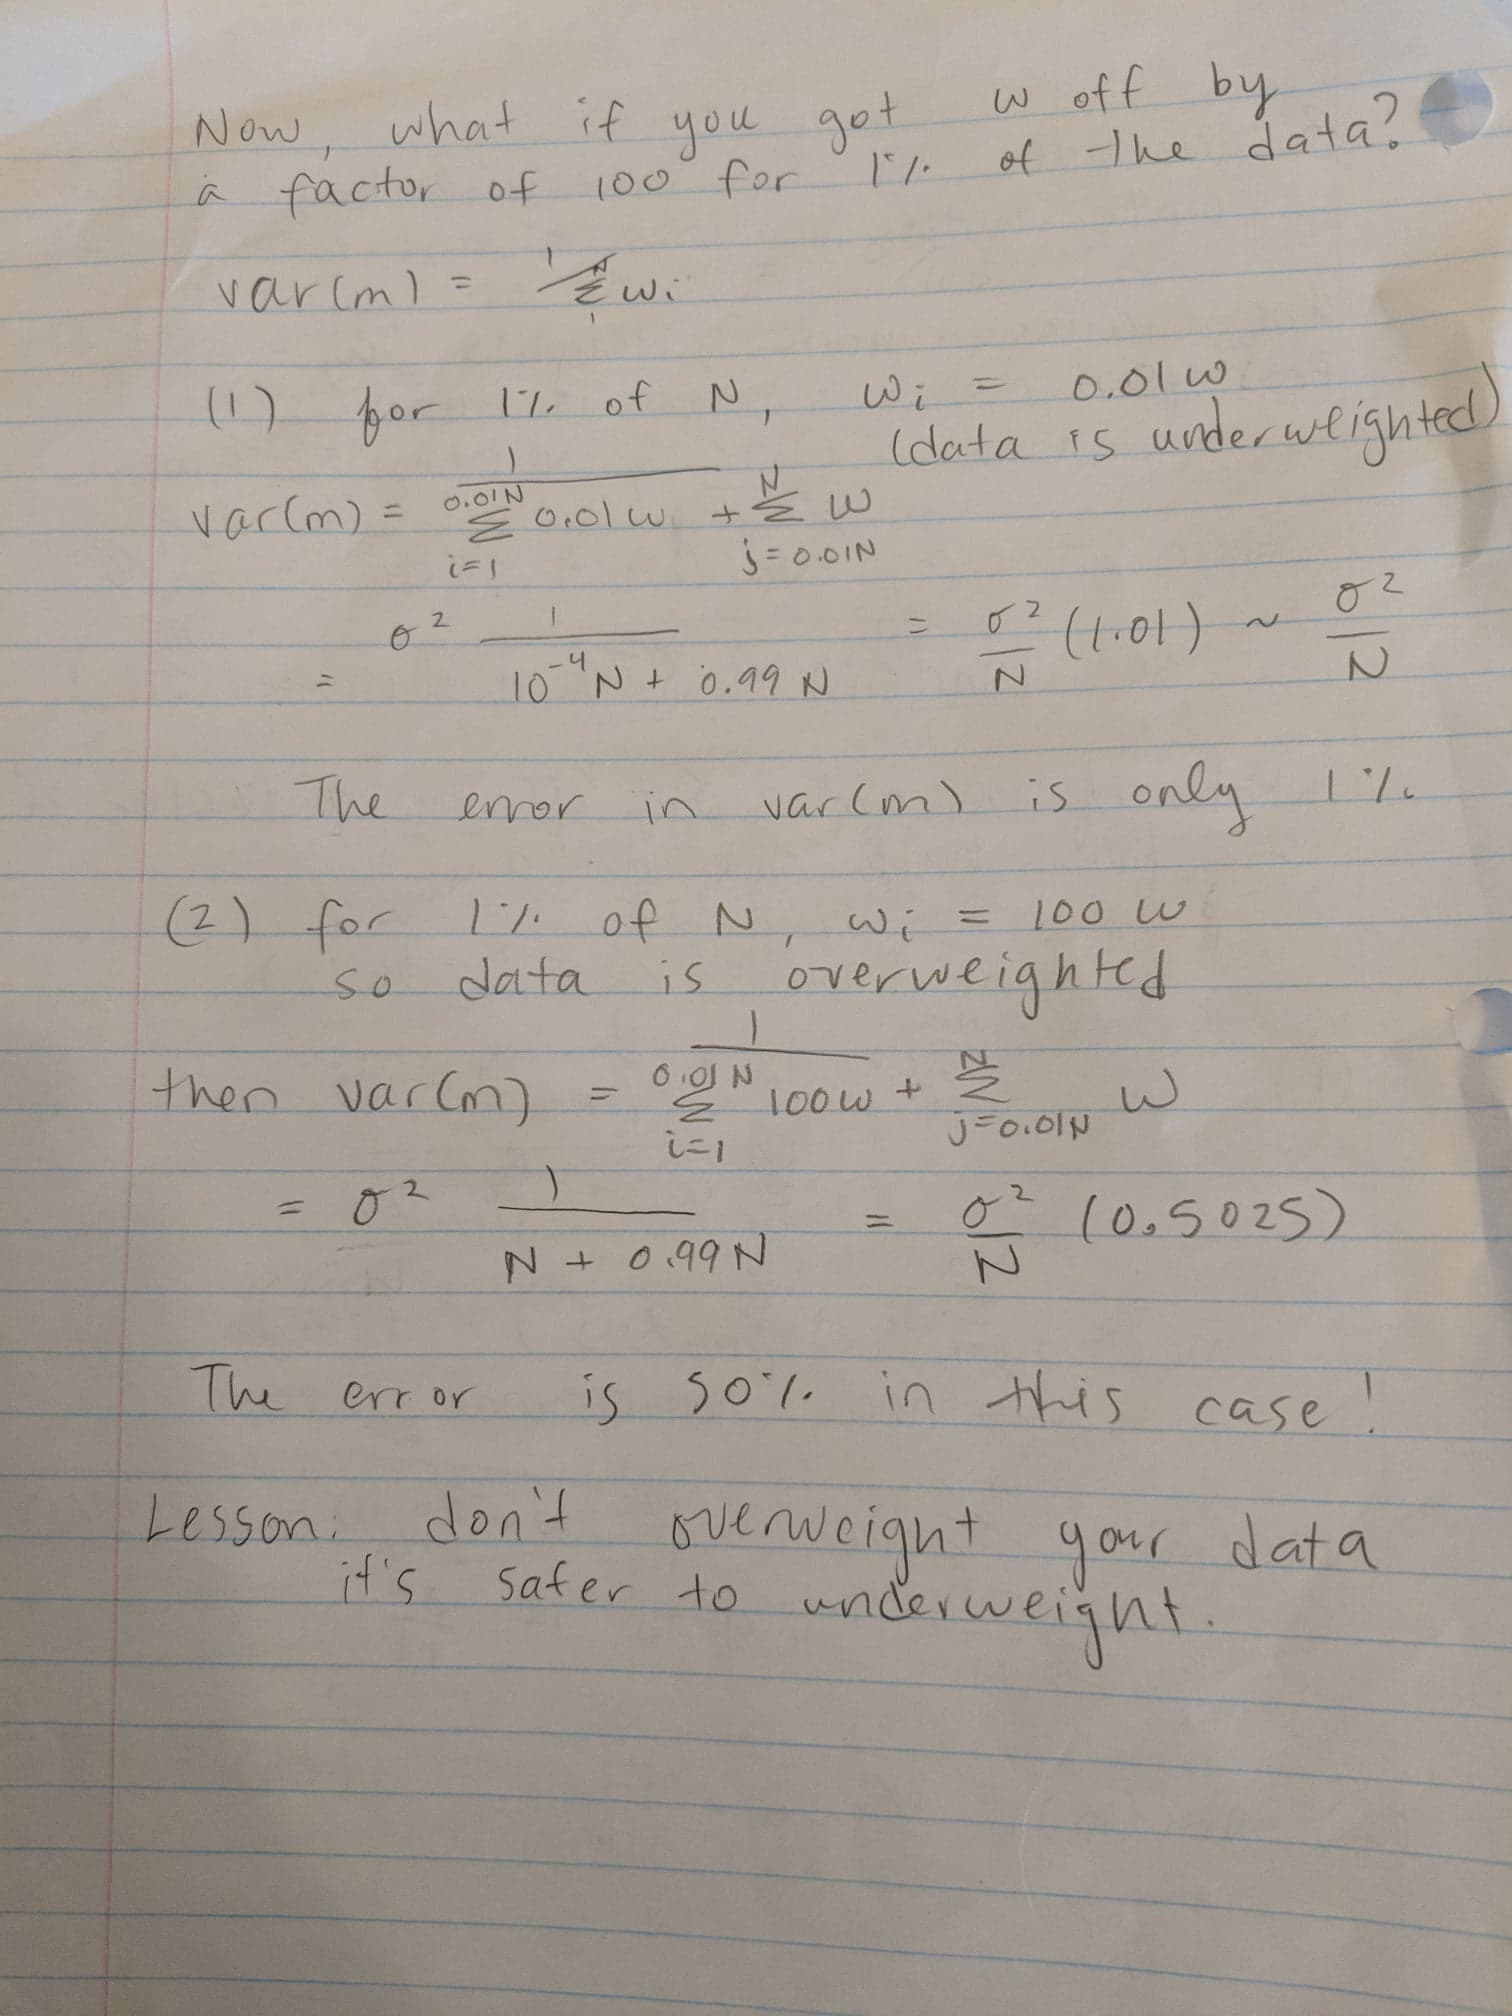 Now, what if you got w off by
a factor of 100 for 1% of the data?
var(m) = 1/Σ₁ᴺ wᵢ
(1) for 1% of N, wᵢ = 0.01w
(data is underweighted)
var(m) = 1 / (Σ_{i=1}^{0.01N} 0.01w + Σ_{j=0.01N}^{N} w)
= σ² 1/(10⁻⁴N + 0.99N) = σ²/N (1.01) ~ σ²/N
The error in var(m) is only 1%
(2) for 1% of N, wᵢ = 100w
so data is overweighted
then var(m) = 1 / (Σ_{i=1}^{0.01N} 100w + Σ_{j=0.01N}^{N} w)
= σ² 1/(N + 0.99N) = σ²/N (0.5025)
The error is 50% in this case!
Lesson: don't overweight your data
it's safer to underweight.